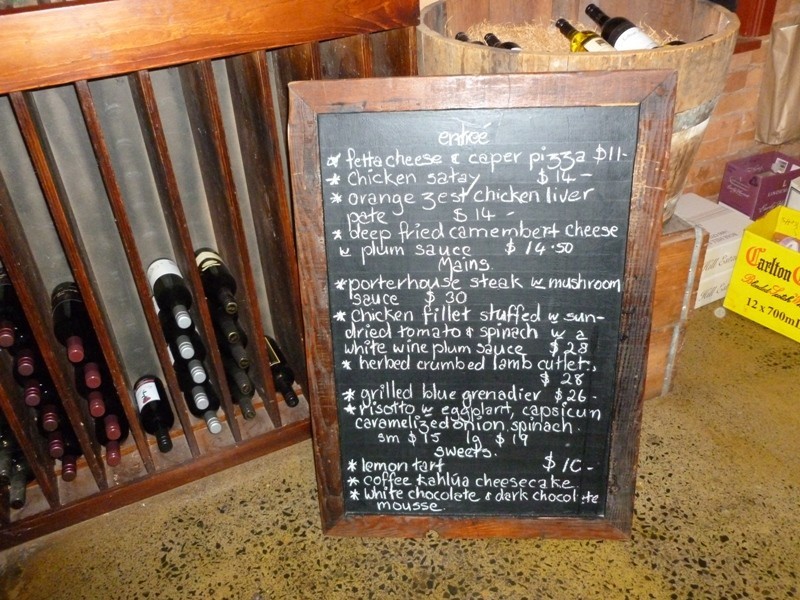 entreé
* fetta cheese & caper pizza $11-
* Chicken satay $14-
* orange zest chicken liver
pate $14-
* deep fried camembert cheese
w plum sauce $14.50
Mains.
* porterhouse steak w mushroom
sauce $30
* Chicken fillet stuffed w sun-
dried tomato & spinach w a
white wine plum sauce $28
* herbed crumbed lamb cutlets
$28
* grilled blue grenadier $26-
* Risotto w eggplant, capsicun
caramelized onion, spinach.
sm $15 lg $19
sweets.
* lemon tart $10-
* coffee kahlua cheesecake
* white chocolate & dark chocolate
mousse
Carlton
12 x 700ml